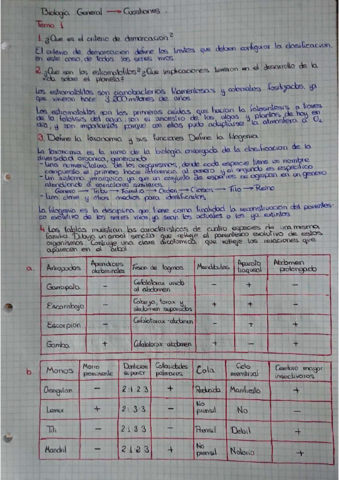 Biología General → Cuestiones.
Tema 1
1. ¿Que es el criterio de demarcación?
El criterio de demarcación define los límites que deben configurar la clasificación,
en este caso, de todos los seres vivos
2. ¿Que son los estromatolitos? ¿Que implicaciones tuvieron en el desarrollo de la
vida sobre el planeta?
Los estromatolitos son cianobacterios filamentosos y coloniales fosilizados, ya
que vivieron hace 3.200 millones de años.
Los estromatolitos son los primeros que hacían la fotosíntesis a través
de la fotólisis del agua, son el ancestro de las algas y plantas de hoy en
día, y son importantes porque con ellos pudo la atmósfera a O₂
3. Define la Taxonomía y sus funciones. Define la filogenia
La taxonomía es la rama de la biología encargada de la clasificación de la
diversidad orgánica,
- Una nomenclatura de los organismos, donde cada especie tiene un nombre
compuesto el primero hace referencia al género y el segundo es específico
- Un sistema jerárquico ya que un conjunto de especies se agrupan en un género
atendiendo a caracteres similares.
Género → Tribu → Familia → Orden → Clase → Filo → Reino
- Una clave y otros medios para clasificarlos.
La filogenia es la disciplina que tiene como finalidad la reconstrucción del parentesco
evolutivo de los seres vivos ya sean los actuales o los ya extintos
4. Las tablas muestran las características de cuatro especies de una misma
familia. Dibuje un árbol sencillo que refleje el parentesco evolutivo de estos
organismos. Construye una clave dicotómica que refleje las relaciones que
aparecen en el árbol
a. Artrópodos Apéndices abdominales Fusión de tagmas Mandíbulas Aparato traqueal Abdomen prolongado
Garrapata - Cefalotórax unido al abdomen - + -
Escarabajo - Cabeza, tórax y abdomen separados + + -
Escorpión - Cefalotórax-abdomen - - +
Gamba + Cefalotórax-abdomen + - +
b. Monos Morro prominente Dentición superior Callosidades Cola Ciclo menstrual Cerebro mayor
Orangután - 2:1:2:3 + Reducida Manifiesto +
Lemur + 2:1:3:3 - No prensil No -
Tití - 2:1:3:3 - Prensil Débil +
Mandril - 2:1:2:3 + No prensil Notorio +